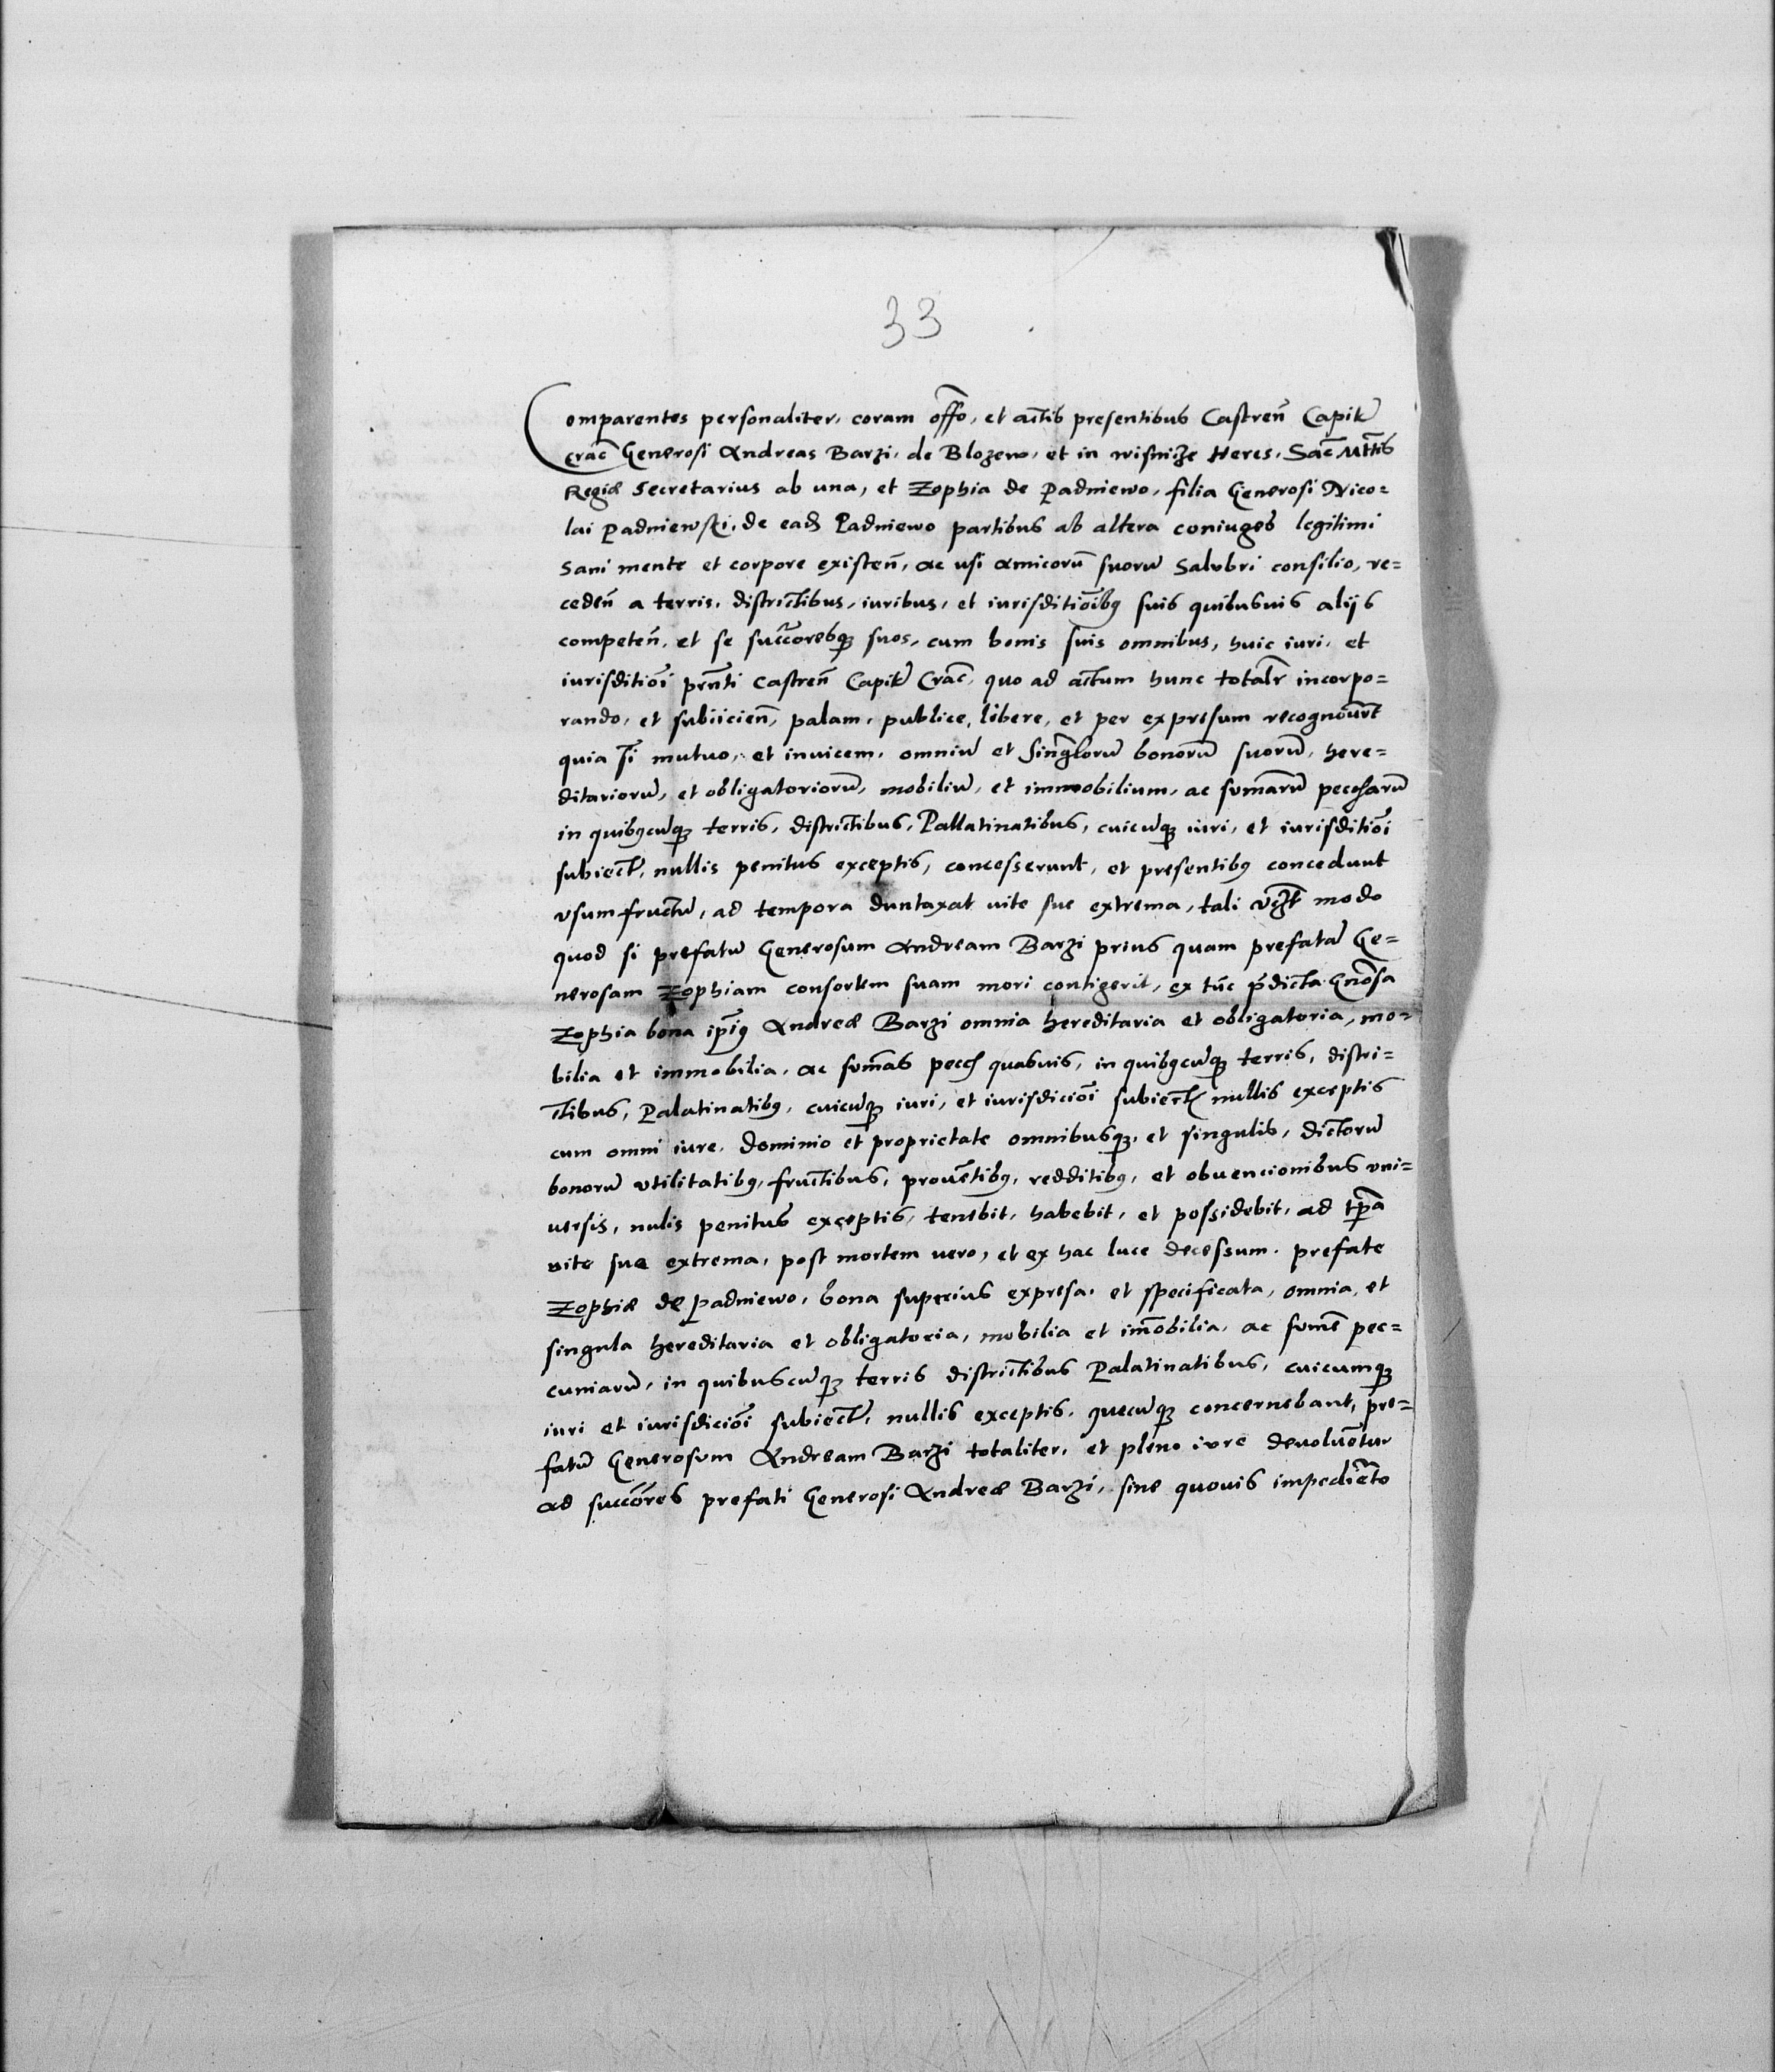 33
Comparentes personaliter, coram offo, et actis presentibus Castren̄ Capit
Crac̄ Generosi Andreas Barzi, de Blozew, et in wisnicze Heres, Sac̄ Mttis
Regiæ Secretarius ab una, et Zophia de Padniewo, filia Generosi Nico=
lai Padniewski, de ead Padniewo partibus ab altera coniuges legitimi
Sani mente et corpore existen̄, ac usi amicorū suorū Salubri consilio, re=
ceden̄ a terris, districtibus, iuribus, et iurisditiōibus suis quibusuis alijs
competen̄, et se succ̄oresq3 suos, cum bonis suis omnibus, huic iuri, et
iurisditiōi pr̄nti Castren̄ Capit Crac̄, quo ad actum hunc totalr̄ incorpo=
rando, et subiicien̄, palam, publice, libere, et per expresum recognoūrt
quia s̄i mutuo, et invicem, omniū et Singlorū bonorū suorū, here=
ditariorū, et obligatoriorū, mobiliū, et immobilium, ac som̄arū
in quibuscūq3 terris, districtibus, Pallatinatibus, cuicūq3 iuri, et iurisditiōi
subiect, nullis penitus exceptis, concesserunt, et presentibus concedunt
vsumfructū, ad tempora duntaxat uite sue extrema, tali modo
quod si prefatū Generosum Andream Barzi prius quam prefatā Ge=
nerosam Zophiam consortem suam mori contigerit, ex tūc p̄dicta Gnōsa
Zophia bona ip̄ius Andreæ Barzi omnia hereditaria et obligatoria, mo=
bilia et immobilia, ac som̄as pecc quasuis, in quibuscūq3 terris, distri=
ctibus, Palatinatibus, cuicūq3 iuri, et iurisdiciōi subiect nullis exceptis
cum omni iure, dominio et proprietate omnibusq3, et singulis, dictorū
bonorū vtilitatibus, fructibus, prouētibus, redditibus, et obuencionibus vni=
uersis, nulis penitus exceptis, tenebit, habebit, et possidebit, ad tp̄a
uite sue extrema, post mortem uero, et ex hac luce decessum, prefate
Zophiæ de Padniewo, bona superius expresa, et specificata, omnia, et
singula hereditaria et obligatoria, mobilia et im̄obilia, ac som̄e pec=
cuniarū, in quibuscūq3 terris districtibus Palatinatibus, cuicumq3
iuri et iurisdiciōi subiect, nullis exceptis, quecūq3 concernebant, pre=
fatū Generosum Andream Barzi totaliter, et pleno iure deuoluētur
ad succ̄ores prefati Generosi Andreæ Barzi, sine quouis impediēto